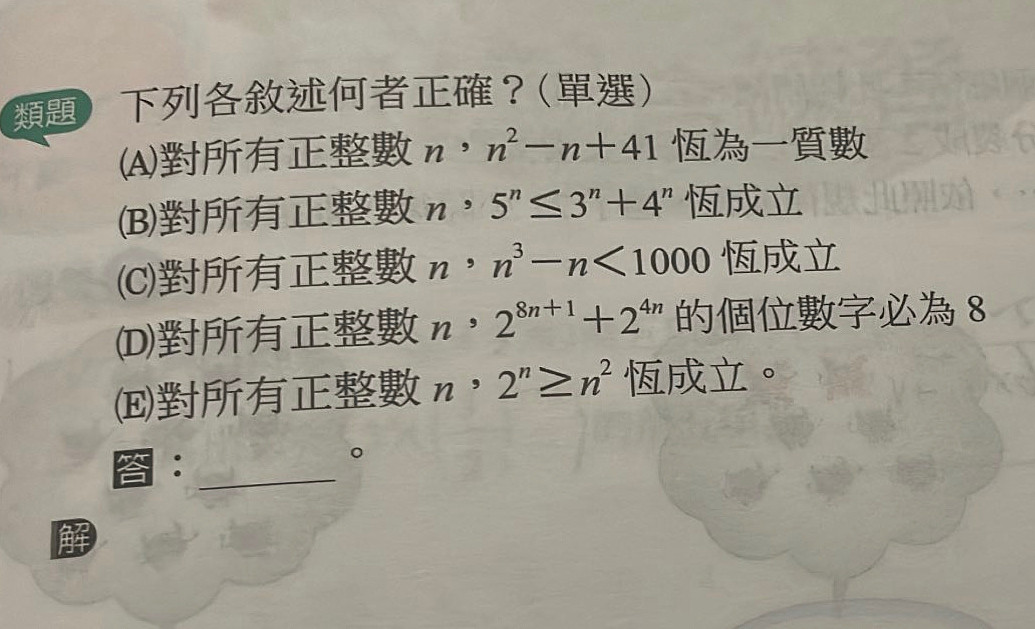 類題 下列各敘述何者正確？(單選)
(A)對所有正整數 n，n²－n＋41 恆為一質數
(B)對所有正整數 n，5ⁿ≤3ⁿ＋4ⁿ 恆成立
(C)對所有正整數 n，n³－n＜1000 恆成立
(D)對所有正整數 n，2⁸ⁿ⁺¹＋2⁴ⁿ 的個位數字必為 8
(E)對所有正整數 n，2ⁿ≥n² 恆成立。
答：＿＿＿＿。
解